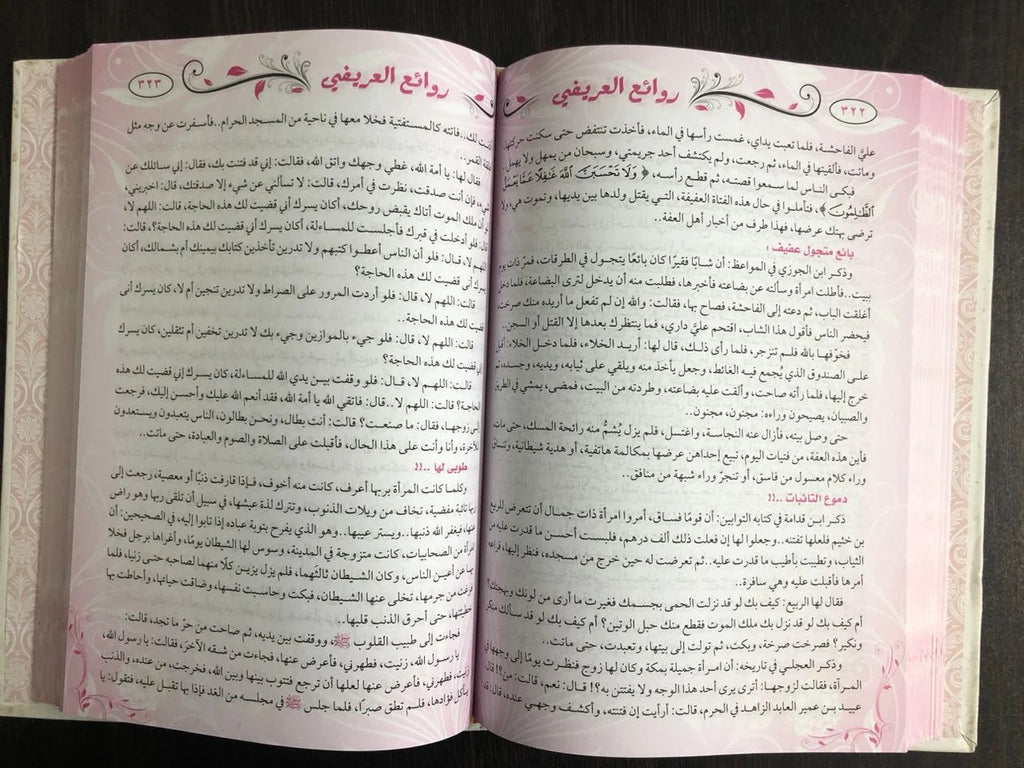 ٣٢٢
روائع العريفي
عليَّ الفاحشة، فلما تعبت يداي، غمست رأسها في الماء، فأخذت تنتفض حتى سكنت حركتها،
وماتت، فألقيتها في الماء، ثم رجعت، ولم يكتشف أحد جريمتي، وسبحان من يمهل ولا يهمل
فبكى الناس لما سمعوا قصته، ثم قطع رأسه، ﴿ وَلَا تَحْسَبَنَّ اللَّهَ غَافِلًا عَمَّا يَعْمَلُ
الظَّالِمُونَ ﴾، فتأملوا في حال هذه الفتاة العفيفة، التي يقتل ولدها بين يديها، وتموت هي، ولا
ترضى بهتك عرضها، فهذا طرف من أخبار أهل العفة..
بائع متجول عفيف :
وذكر ابن الجوزي في المواعظ: أن شابًا فقيرًا كان بائعًا يتجول في الطرقات، فمرّ ذات يوم
ببيت.. فأطلت امرأة وسألته عن بضاعته فأخبرها، فطلبت منه أن يدخل لترى البضاعة، فلما دخل
أغلقت الباب، ثم دعته إلى الفاحشة، فصاح بها، فقالت: والله إن لم تفعل ما أريده منك صرخت
فيحضر الناس فأقول هذا الشاب، اقتحم عليَّ داري، فما ينتظرك بعدها إلا القتل أو السجن..
فخوّفها بالله فلم تنزجر، فلما رأى ذلك، قال لها: أريد الخلاء، فلما دخل الخلاء: أقبل
على الصندوق الذي يُجمع فيه الغائط، وجعل يأخذ منه ويلقي على ثيابه، ويديه، وجسده، ثم
خرج إليها، فلما رأته صاحت، وألقت عليه بضاعته، وطردته من البيت، فمضى، يمشي في الطريق
والصبيان، يصيحون وراءه: مجنون، مجنون..
حتى وصل بيته، فأزال عنه النجاسة، واغتسل، فلم يزل يُشمُّ منه رائحة المسك، حتى مات
فأين هذه العفة، من فتيات اليوم، تبيع إحداهن عرضها بمكالمة هاتفية، أو هدية شيطانية، وتنساق
وراء كلام معسول من فاسق، أو تنجرّ وراء شبهة من منافق..
دموع التائبات ..!!
ذكر ابن قدامة في كتابه التوابين: أن قومًا فساق، أمروا امرأة ذات جمال أن تتعرض للربيع
بن خثيم فلعلها تفتنه.. وجعلوا لها إن فعلت ذلك ألف درهم، فلبست أحسن ما قدرت عليه من
الثياب، وتطيبت بأطيب ما قدرت عليه.. ثم تعرضت له حين خرج من مسجده، فنظر إليها، فراعه
أمرها فأقبلت عليه وهي سافرة..
فقال لها الربيع: كيف بك لو قد نزلت الحمى بجسمك فغيرت ما أرى من لونك وبهجتك؟
أم كيف بك لو قد نزل بك ملك الموت فقطع منك حبل الوتين؟ أم كيف بك لو قد سألك منكر
ونكير؟ فصرخت صرخة، وبكت، ثم تولت إلى بيتها، وتعبدت، حتى ماتت..
وذكر العجلي في تاريخه: أن امرأة جميلة بمكة وكان لها زوج فنظرت يومًا إلى وجهها في
المرآة، فقالت لزوجها: أترى يرى أحد هذا الوجه ولا يفتتن به؟! قال: نعم، قالت: من؟! قال:
عبيد بن عمير العابد الزاهد في الحرم، قالت: أرأيت إن فتنته، وأكشف وجهي عنده، قال: قد
روائع العريفي
٣٢٣
لك.. فأتته كالمستفتية فخلا معها في ناحية من المسجد الحرام.. فأسفرت عن وجه مثل
القمر..
فقال لها: يا أمة الله، غطي وجهك واتق الله، فقالت: إني قد فتنت بك، فقال: إني سائلك عن
شيء، فإن أنت صدقت، نظرت في أمرك، قالت: لا تسألني عن شيء إلا صدقتك، قال: اخبريني،
ملك الموت أتاك يقبض روحك، أكان يسرك أني قضيت لك هذه الحاجة، قالت: اللهم لا،
قال: فلو أدخلت في قبرك فأجلست للمساءلة، أكان يسرك أني قضيت لك هذه الحاجة؟، قالت:
اللهم لا، قال: فلو أن الناس أعطوا كتبهم ولا تدرين تأخذين كتابك بيمينك أم بشمالك، أكان
يسرك أني قضيت لك هذه الحاجة؟
قالت: اللهم لا، قال: فلو أردت المرور على الصراط ولا تدرين تنجين أم لا، كان يسرك أنى
قضيت لك هذه الحاجة..
قالت: اللهم لا، قال: فلو جيء بالموازين وجيء بك لا تدرين تخفين أم تثقلين، كان يسرك
أني قضيت لك هذه الحاجة؟
قالت: اللهم لا، قال: فلو وقفت بين يدي الله للمساءلة، كان يسرك إني قضيت لك هذه
الحاجة؟ قالت: اللهم لا.. قال: فاتقي الله يا أمة الله، فقد أنعم الله عليك وأحسن إليك، فرجعت
إلى زوجها، فقال: ما صنعت؟ قالت: أنت بطال، ونحن بطالون، الناس يتعبدون ويستعدون
للآخرة، وأنا وأنت على هذا الحال، فأقبلت على الصلاة والصوم والعبادة، حتى ماتت..
طوبى لها ..!!
وكلما كانت المرأة بربها أعرف، كانت منه أخوف، فإذا قارفت ذنبًا أو معصية، رجعت إلى
ربها تائبة مفضية، تخاف من ويلات الذنوب، وتترك لذة عيشها، في سبيل أن تلقى ربها وهو راض
عنها، فيغفر الله ذنبها.. ويستر عيبها.. وهو الذي يفرح بتوبة عباده إذا تابوا إليه، في الصحيحين: أن
امرأة من الصحابيات، كانت متزوجة في المدينة، وسوس لها الشيطان يومًا، وأغراها برجل فخلا
بها عن أعين الناس، وكان الشيطان ثالثَهما، فلم يزل يزين كلًا منهما لصاحبه حتى زنيا، فلما
فرغت من جرمها، تخلى عنها الشيطان، فبكت وحاسبت نفسها، وضاقت حياتها، وأحاطت بها
خطيئتها، حتى أحرق الذنب قلبها..
فجاءت إلى طبيب القلوب ﷺ، ووقفت بين يديه، ثم صاحت من حرّ ما تجد، قالت:
يا رسول الله، زنيت، فطهرني، فأعرض عنها، فجاءت من شقه الآخر، فقالت: يا رسول الله،
زنيت، فطهرني، فأعرض عنها لعلها أن ترجع فتتوب بينها وبين الله، فخرجت، من عنده، والذنب
يأكل فؤادها، فلم تطق صبرًا، فلما جلس ﷺ في مجلسه من الغد فإذا بها تقبل عليه، فتقول: يا